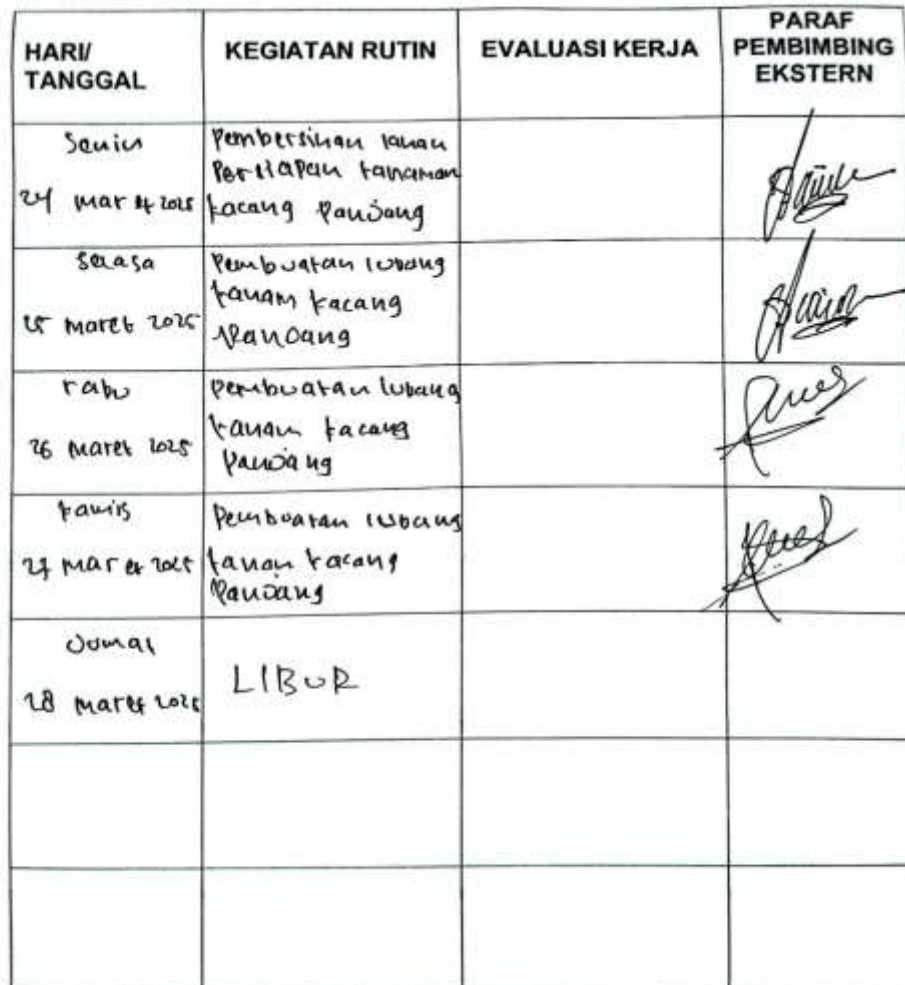 HARI/
TANGGAL
KEGIATAN RUTIN
EVALUASI KERJA
PARAF
PEMBIMBING
EKSTERN
Senin
24 maret 2025
Pembersihan lahan
Persiapan tanaman
kacang Panjang
Selasa
25 maret 2025
Pembuatan lubang
tanam kacang
Panjang
rabu
26 maret 2025
pembuatan lubang
tanam kacang
Panjang
kamis
27 maret 2025
Pembuatan lubang
tanam kacang
Panjang
Jumat
28 maret 2025
LIBUR